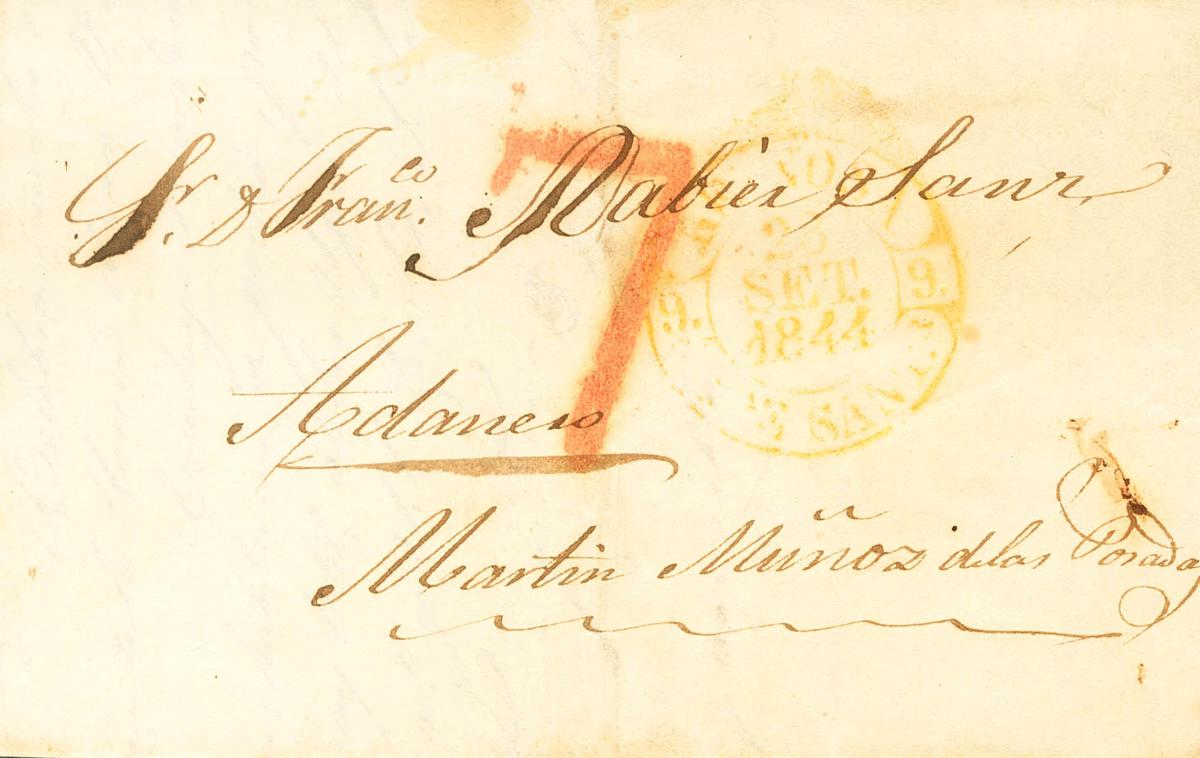 Sr. D Fran.co Xabier Sanz
7
9. 9.
SET.
1844
DE SAN
Adanero
Martin Muñoz de las Posadas